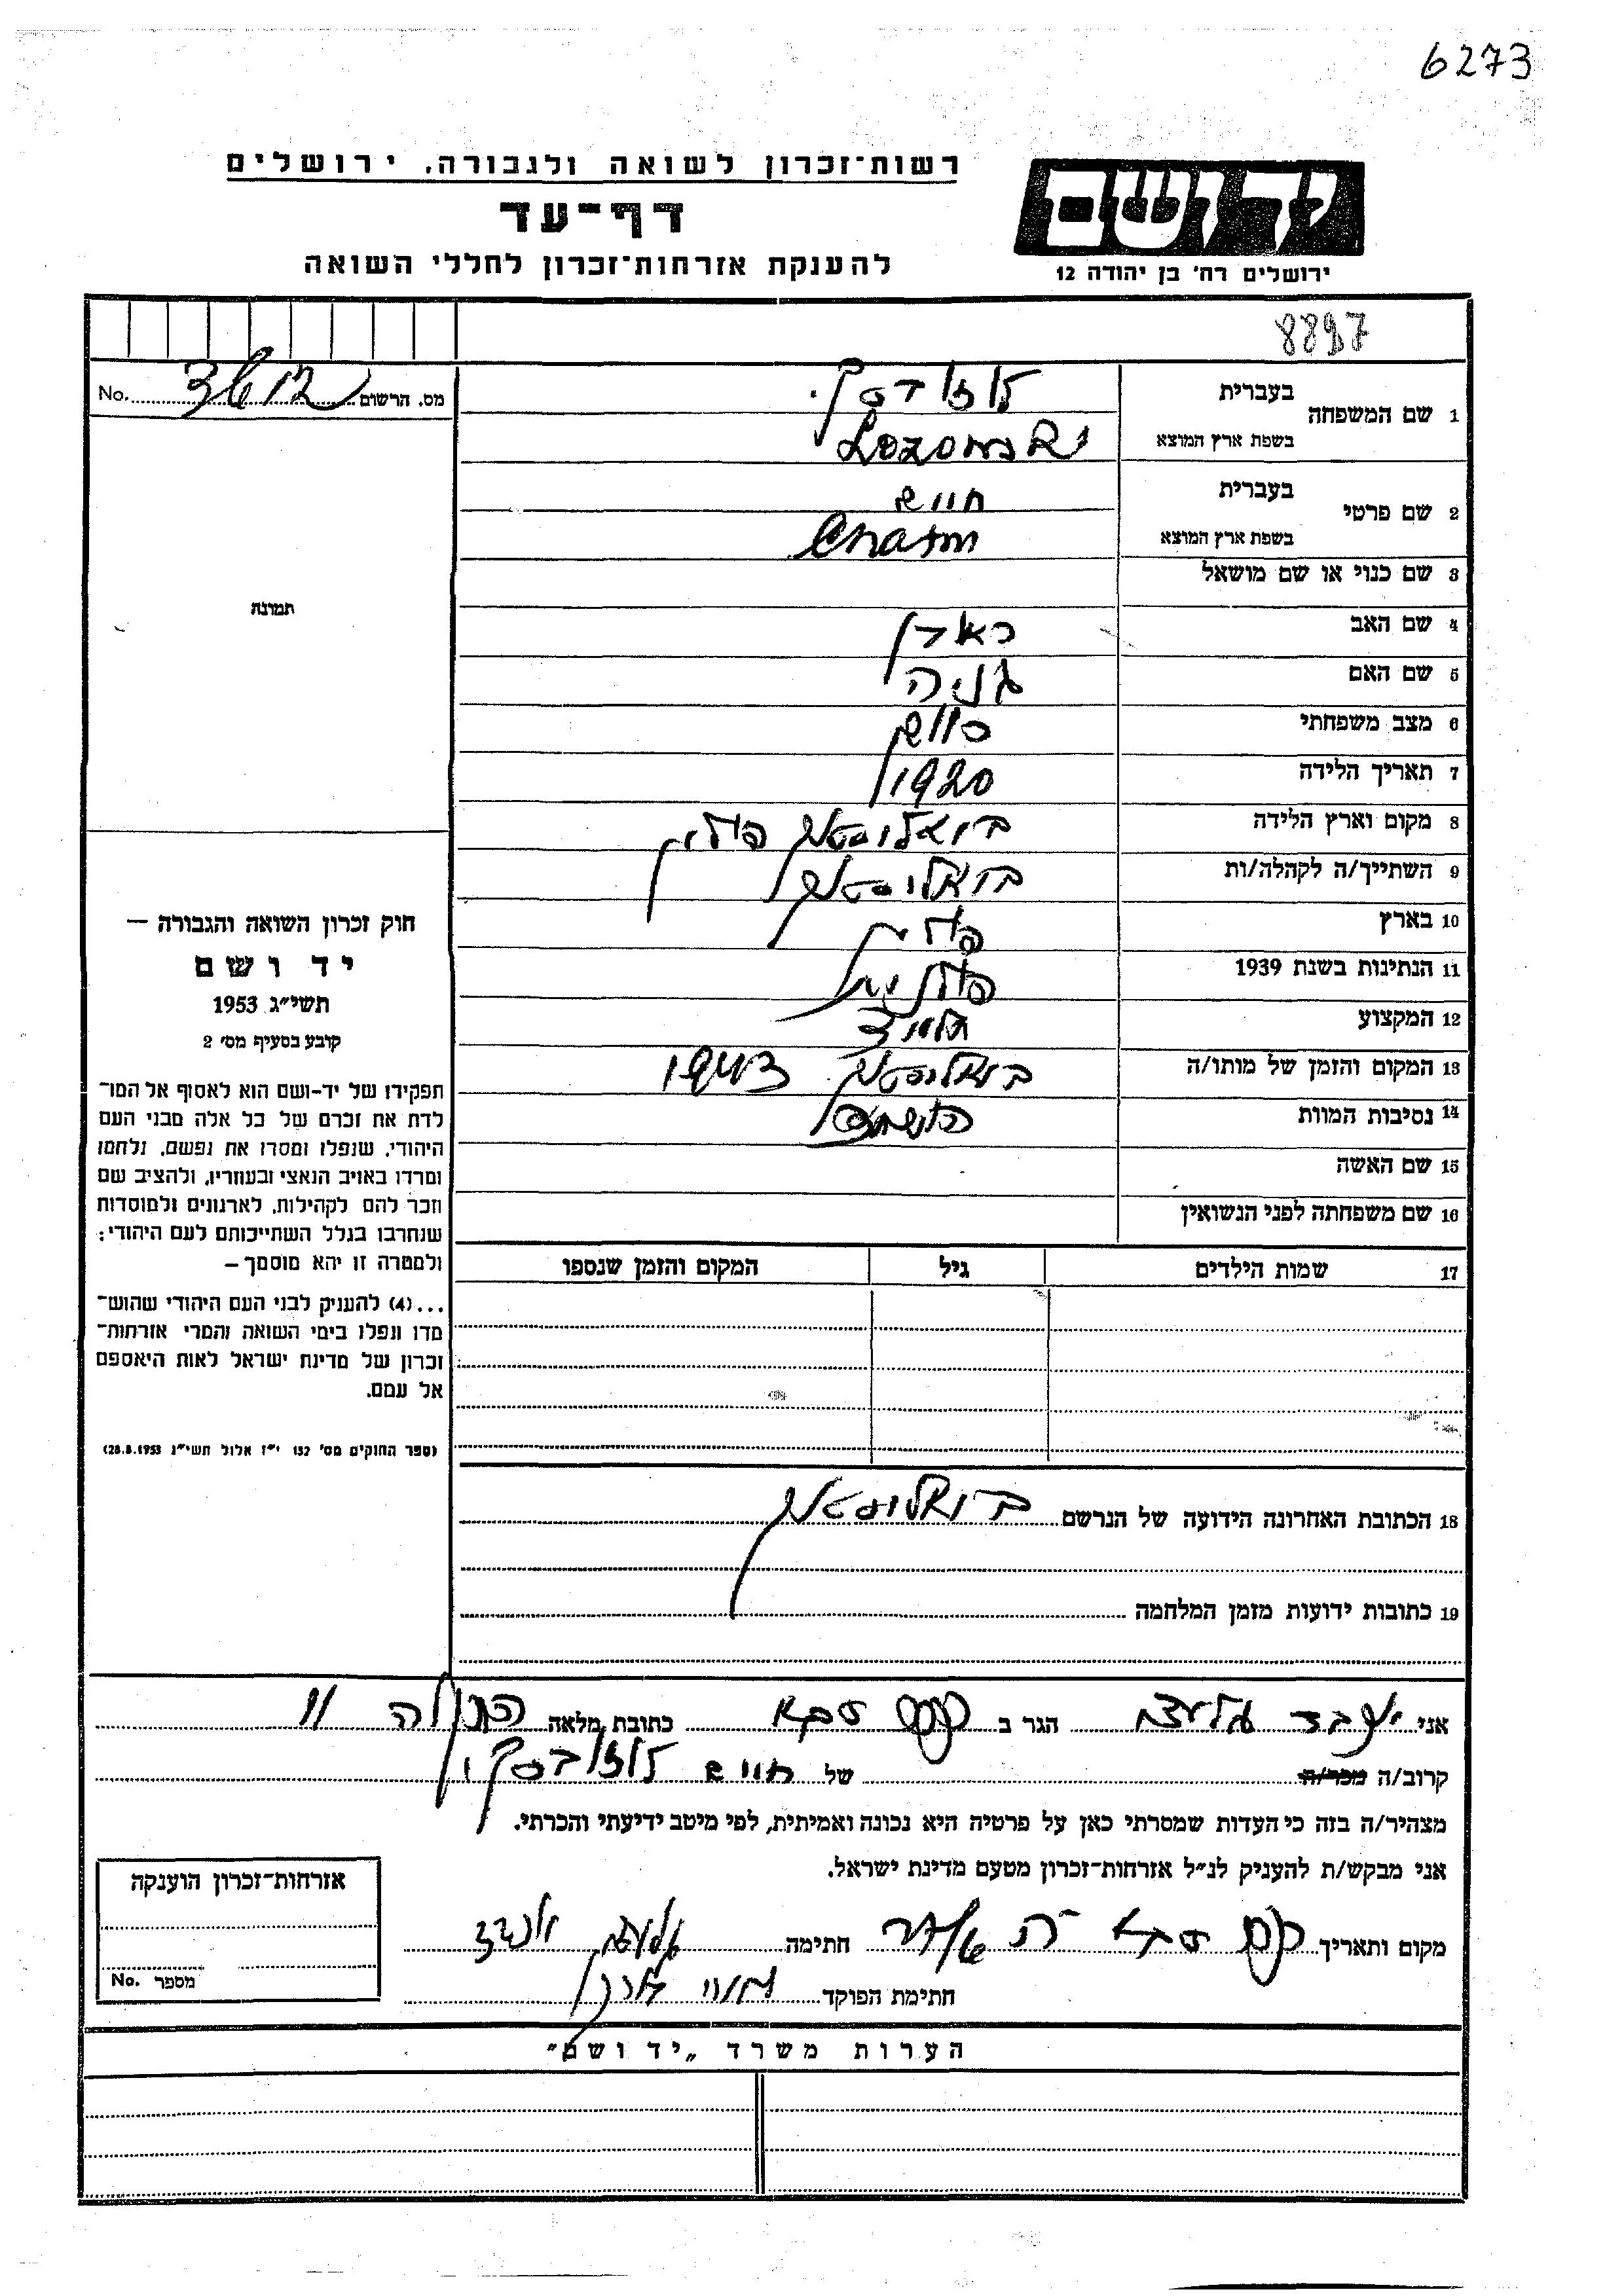 6273
רשות־זכרון לשואה ולגבורה, ירושלים
דף־עד
להענקת אזרחות־זכרון לחללי השואה
יד ושם
ירושלים רח' בן יהודה 12
8897
מס. הרשום No.
1 שם המשפחה
בעברית
בשפת ארץ המוצא
2 שם פרטי
בעברית חיים
בשפת ארץ המוצא Chaim
3 שם כנוי או שם מושאל
4 שם האב
5 שם האם גניה
6 מצב משפחתי
7 תאריך הלידה 1920
8 מקום וארץ הלידה ביאליסטוק פולין
9 השתייך/ה לקהלה/ות ביאליסטוק
10 בארץ פולין
11 הנתינות בשנת 1939 פולנית
12 המקצוע תלמיד
13 המקום והזמן של מותו/ה ביאליסטוק 1943
14 נסיבות המוות
15 שם האשה
16 שם משפחתה לפני הנשואין
17 שמות הילדים גיל המקום והזמן שנספו
תמונה
חוק זכרון השואה והגבורה —
יד ושם
תשי״ג 1953
קובע בסעיף מס' 2
תפקידו של יד־ושם הוא לאסוף אל המו־
לדת את זכרם של כל אלה מבני העם
היהודי, שנפלו ומסרו את נפשם, נלחמו
ומרדו באויב הנאצי ובעוזריו, ולהציב שם
וזכר להם לקהילות, לארגונים ולמוסדות
שנחרבו בגלל השתייכותם לעם היהודי;
ולמטרה זו יהא מוסמך —
...(4) להעניק לבני העם היהודי שהוש־
מדו ונפלו בימי השואה והמרי אזרחות־
זכרון של מדינת ישראל לאות היאספם
אל עמם.
(ספר החוקים מס' 132 י״ז אלול תשי״ג 28.8.1953)
18 הכתובת האחרונה הידועה של הנרשם ביאליסטוק
19 כתובות ידועות מזמן המלחמה
אני הגר ב כפר סבא כתובת מלאה 11
קרוב/ה מכר/ה של חיים
מצהיר/ה בזה כי העדות שמסרתי כאן על פרטיה היא נכונה ואמיתית, לפי מיטב ידיעתי והכרתי.
אני מבקש/ת להעניק לנ״ל אזרחות־זכרון מטעם מדינת ישראל.
מקום ותאריך כפר סבא חתימה
חתימת הפוקד
אזרחות־זכרון הוענקה
מספר No.
הערות משרד „יד ושם״